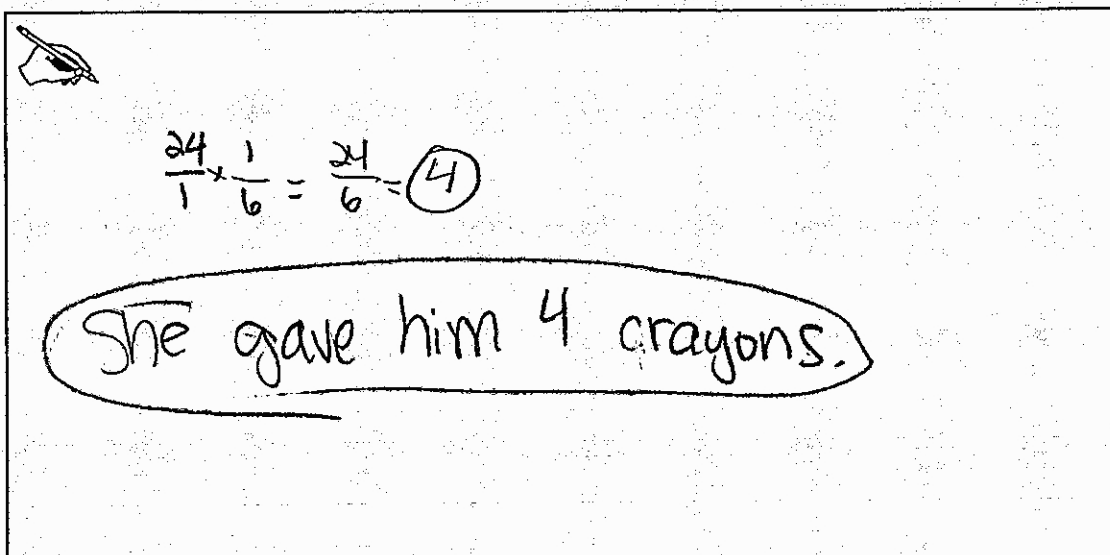 24/1 × 1/6 = 24/6 = 4
She gave him 4 crayons.